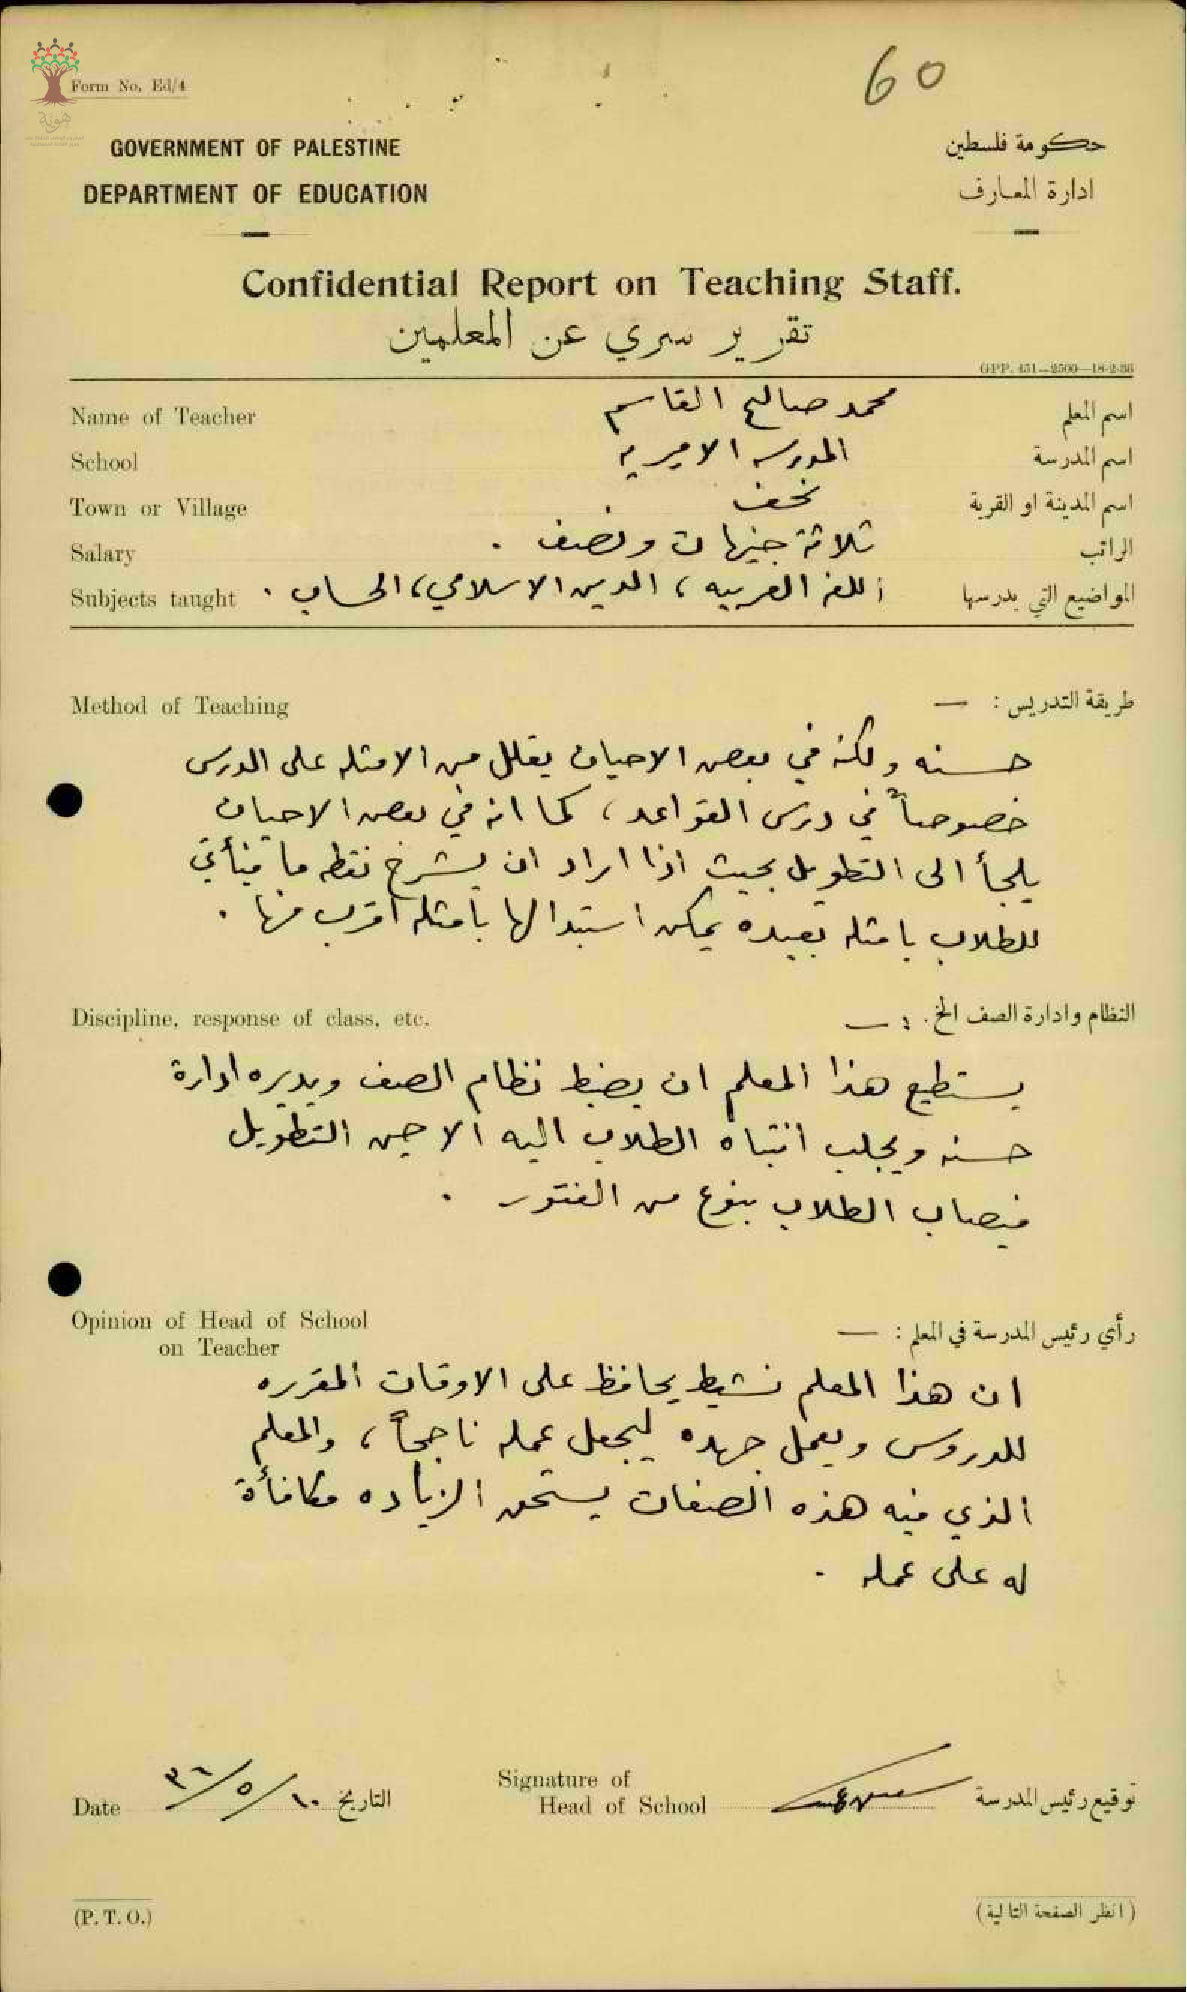 هوية
Form No. Ed/4
60
GOVERNMENT OF PALESTINE
حكومة فلسطين
DEPARTMENT OF EDUCATION
ادارة المعارف
Confidential Report on Teaching Staff.
تقرير سري عن المعلمين
GPP. 451—2500—18-2-36
Name of Teacher محمد صالح القاسم اسم المعلم
School المدرسه الاميريه اسم المدرسة
Town or Village نحف اسم المدينة او القرية
Salary ثلاثة جنيهات ونصف . الراتب
Subjects taught اللغه العربيه ، الدين الاسلامي ، الحساب . المواضيع التي يدرسها
Method of Teaching طريقة التدريس : —
حسنه ولكنه في بعض الاحيان يقلل من الامثله على الدرس
خصوصاً في درس القواعد ، كما انه في بعض الاحيان
يلجأ الى التطويل بحيث اذا اراد ان يشرح نقطه ما فيأتي
للطلاب بامثله بعيده يمكن استبدالها بامثله اقرب منها .
Discipline, response of class, etc. النظام وادارة الصف الخ . : —
يستطيع هذا المعلم ان يضبط نظام الصف ويديره ادارة
حسنه ويجلب انتباه الطلاب اليه الا حين التطويل
فيصاب الطلاب بنوع من الفتور .
Opinion of Head of School رأي رئيس المدرسة في المعلم : —
on Teacher
ان هذا المعلم نشيط يحافظ على الاوقات المقرره
للدروس ويعمل جهده ليجعل عمله ناجحاً ، والمعلم
الذي فيه هذه الصفات يستحق الزياده مكافأة
له على عمله .
Date ١٠/٥/٣٦ التاريخ
Signature of
Head of School توقيع رئيس المدرسة
(P. T. O.) (انظر الصفحة التالية)